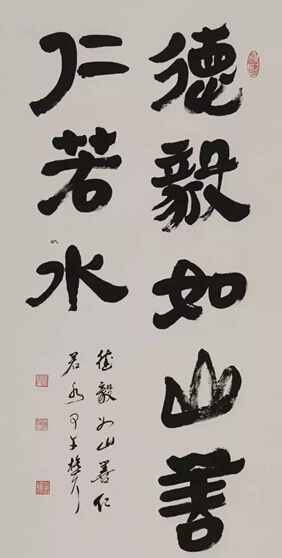 德毅如山善
仁若水
德毅如山善仁
若水